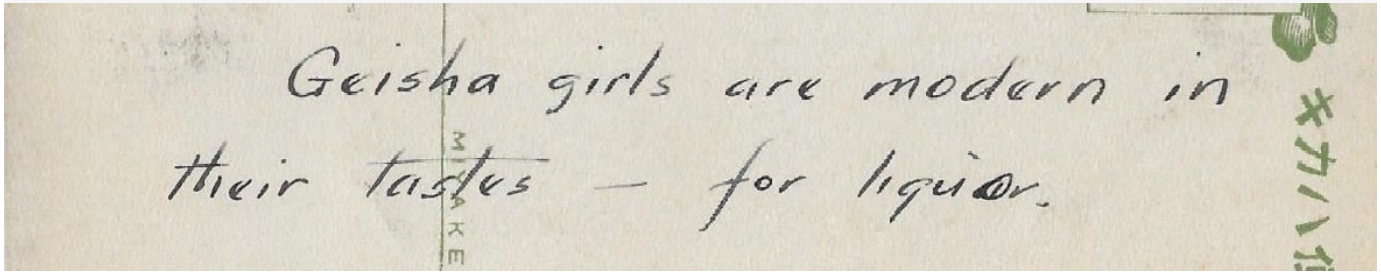 Geisha girls are modern in
their tastes — for liquor.
MITAKE
キカハ